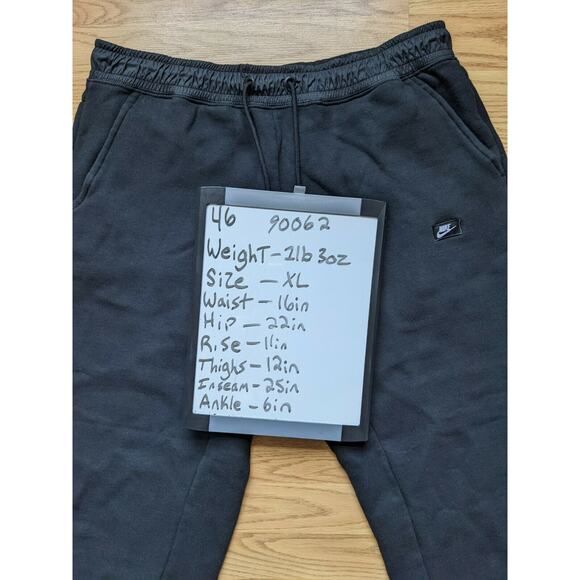 46 90062
Weight - 1lb 3oz
Size - XL
Waist - 16in
Hip - 22in
Rise - 11in
Thighs - 12in
Inseam - 25in
Ankle - 6in
NIKE